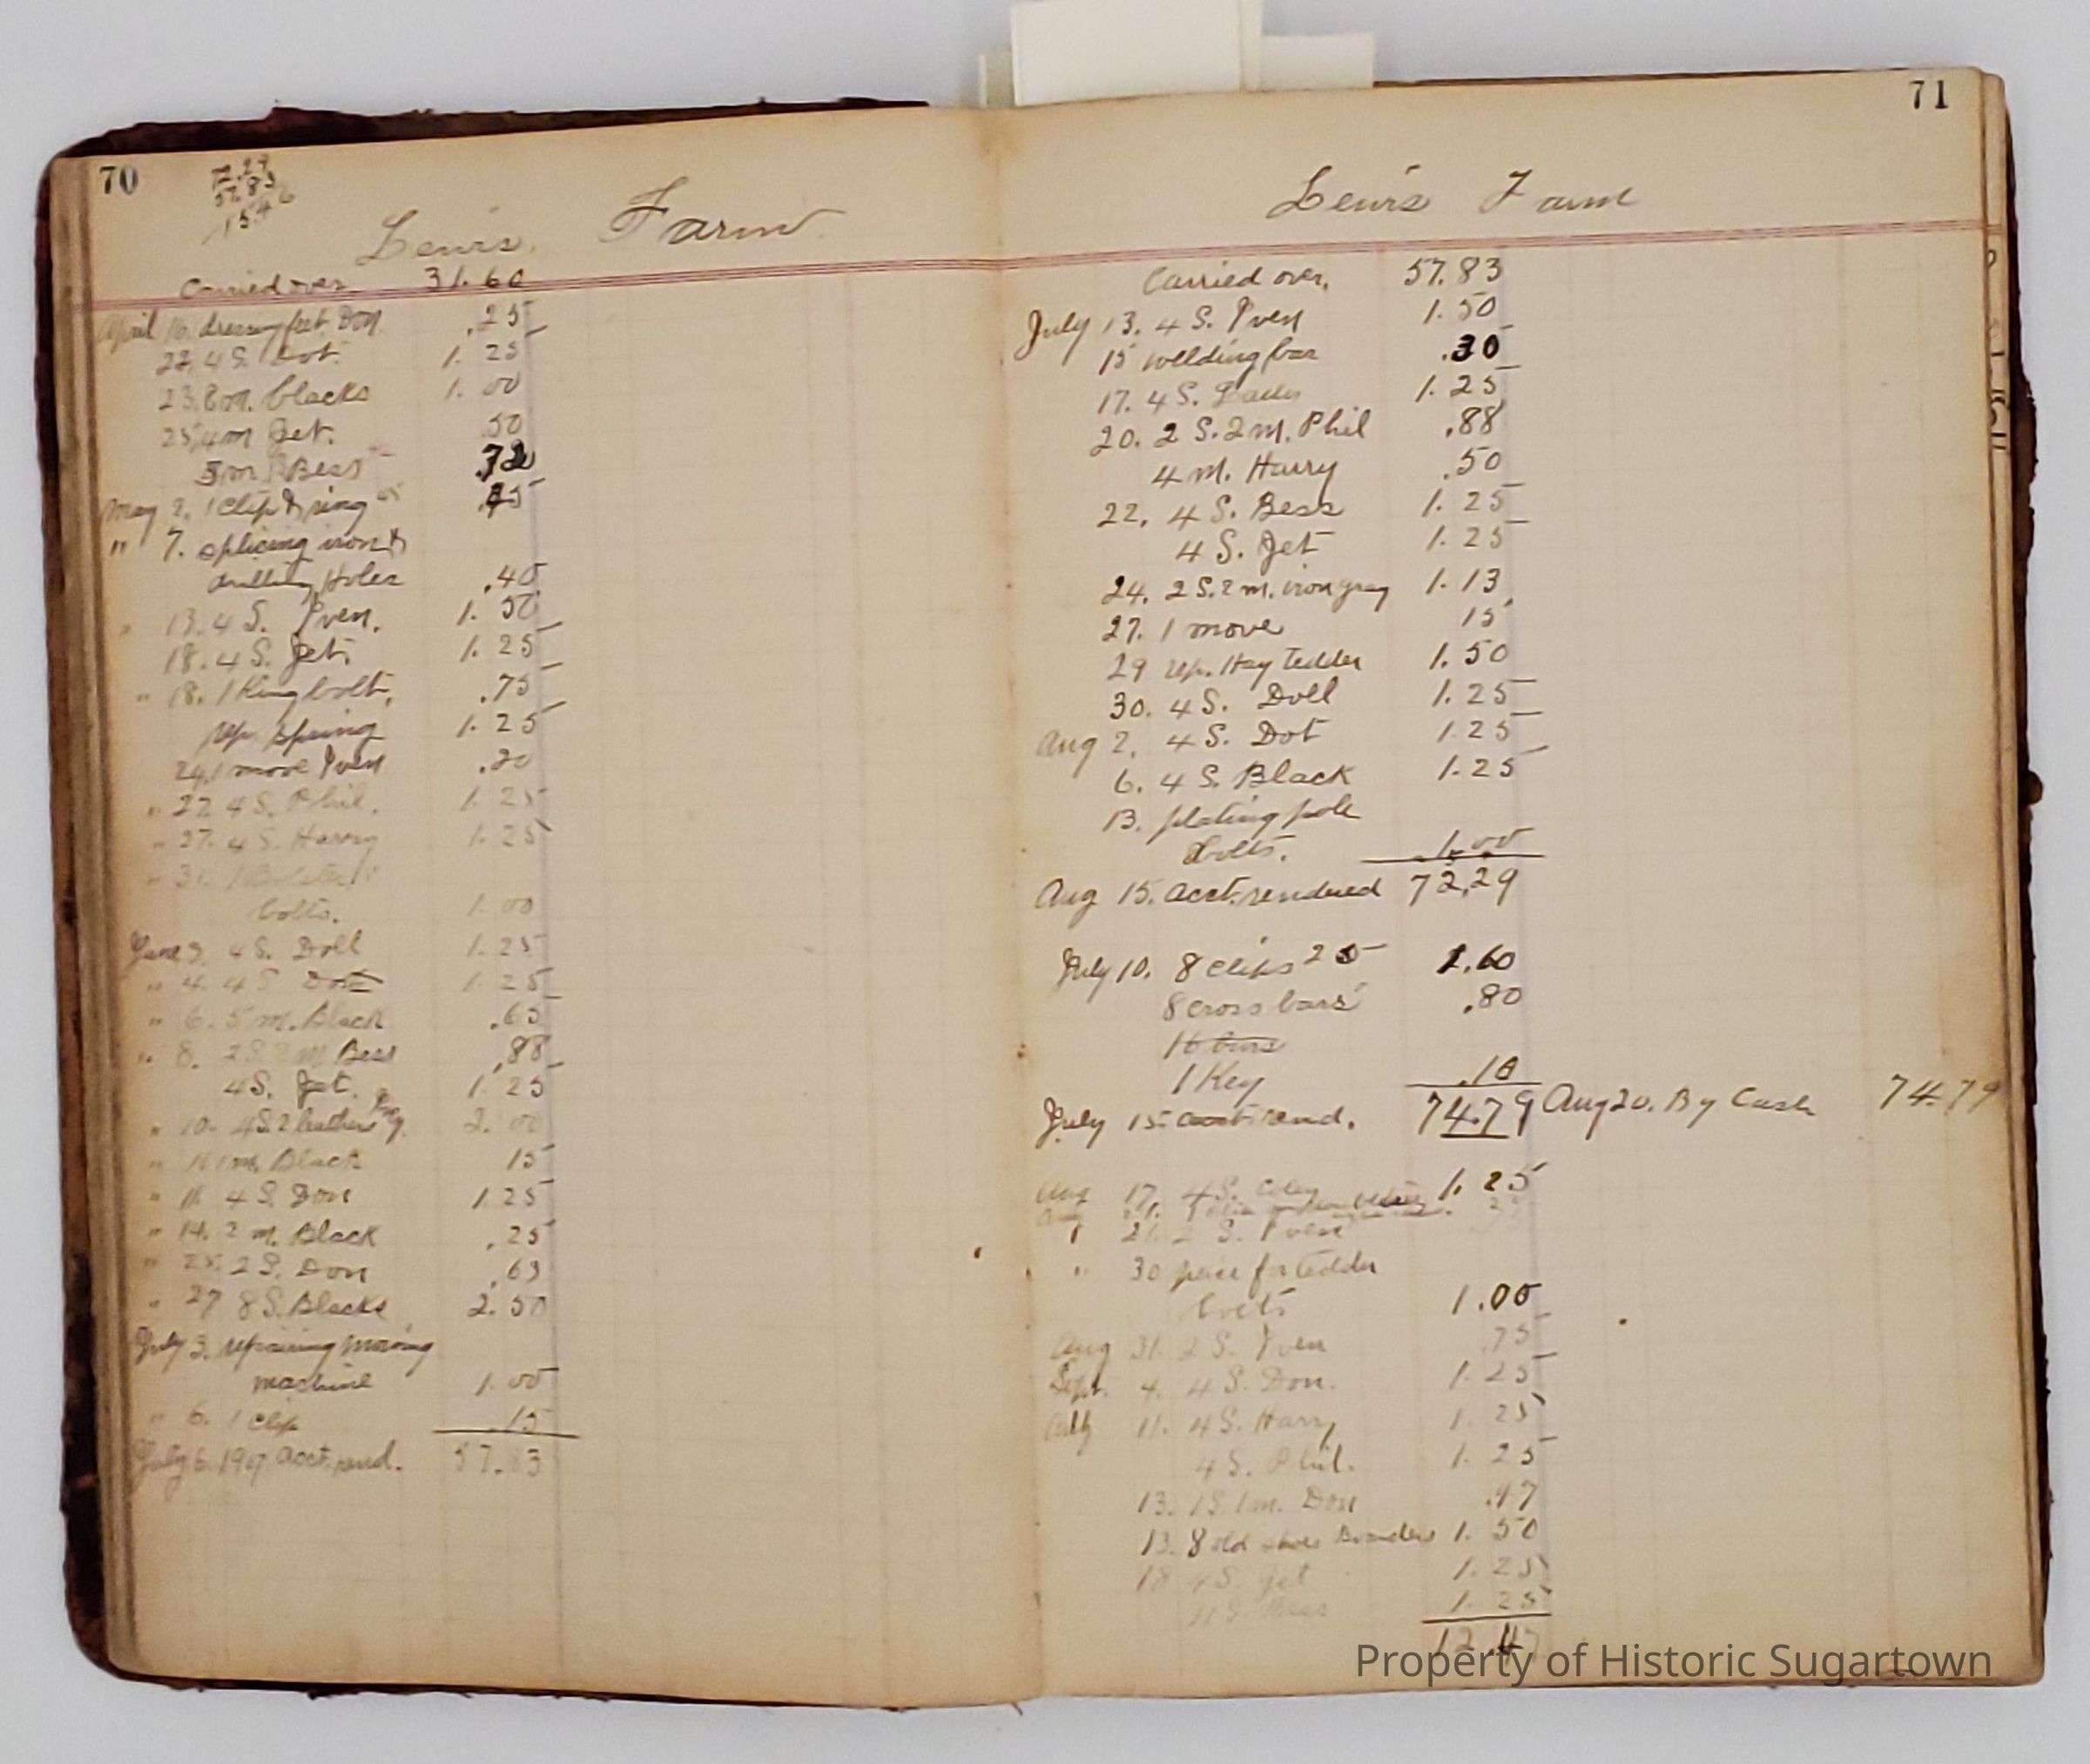 70
72.29
57.83
15.46
Lewis. Farm
Carried over 31.60
April 16. dressing feet Don. .25
22. 4 S. Dot. 1.25
23. 8 m. blacks 1.00
25. 4 m Jet. 50
5 m Bess
May 2. 1 Clip & ring
" 7. splicing iron &
drilling Holes .40
" 13. 4 S. Pven. 1.50
18. 4 S. Jet. 1.25
" 18. 1 King bolt, .75
rep. spring 1.25
24. 1 move Pven .20
" 22 4 S. Phil. 1.25
" 27. 4 S. Harry 1.25
" 31. 1
bolts. 1.00
June 3. 4 S. Doll 1.25
" 4. 4 S Dot 1.25
" 6. 5 m. Black .63
" 8. 2 S. 2 m Bess .88
4 S. Jet. 1.25
" 10. 4 S. 2 leathers 2.00
" 11 1 m. Black 15
" 11. 4 S. Don 1.25
" 14. 2 m. Black .25
" 25. 2 S. Don .63
" 27 8 S. Blacks 2.50
July 3. repairing mowing
machine 1.00
" 6. 1 Clip .15
July 6. 1907 acct. rend. 57.83
71
Lewis Farm
Carried over, 57.83
July 13. 4 S. Pven 1.50
15 wellding bar .30
17. 4 S. 1.25
20. 2 S. 2 m. Phil .88
4 m. Harry .50
22. 4 S. Bess 1.25
4 S. Jet 1.25
24. 2 S. 2 m. iron gray 1.13
27. 1 move 15
29 rep. Hay Tedder 1.50
30. 4 S. Doll 1.25
Aug 2. 4 S. Dot 1.25
6. 4 S. Black 1.25
13. plating pole
bolts. 1.00
Aug 15. acct. rendered 72.29
July 10. 8 clips 1.60
8 cross bars .80
16 burs
1 Key .10
July 15 acct rend. 74.79 Aug 20. By Cash 74.79
Aug 17. 4 S. 1.25
" 21. 2 S. Pven
" 30 piece for tedder
bolts 1.00
Aug 31. 2 S. Pven .75
Sept. 4. 4 S. Don. 1.25
11. 4 S. Harry 1.25
4 S. Phil. 1.25
13. 1 S. 1 m. Don .47
13. 8 old shoes 1.50
18 4 S. Jet 1.25
4 S. Bess 1.25
12.47
Property of Historic Sugartown